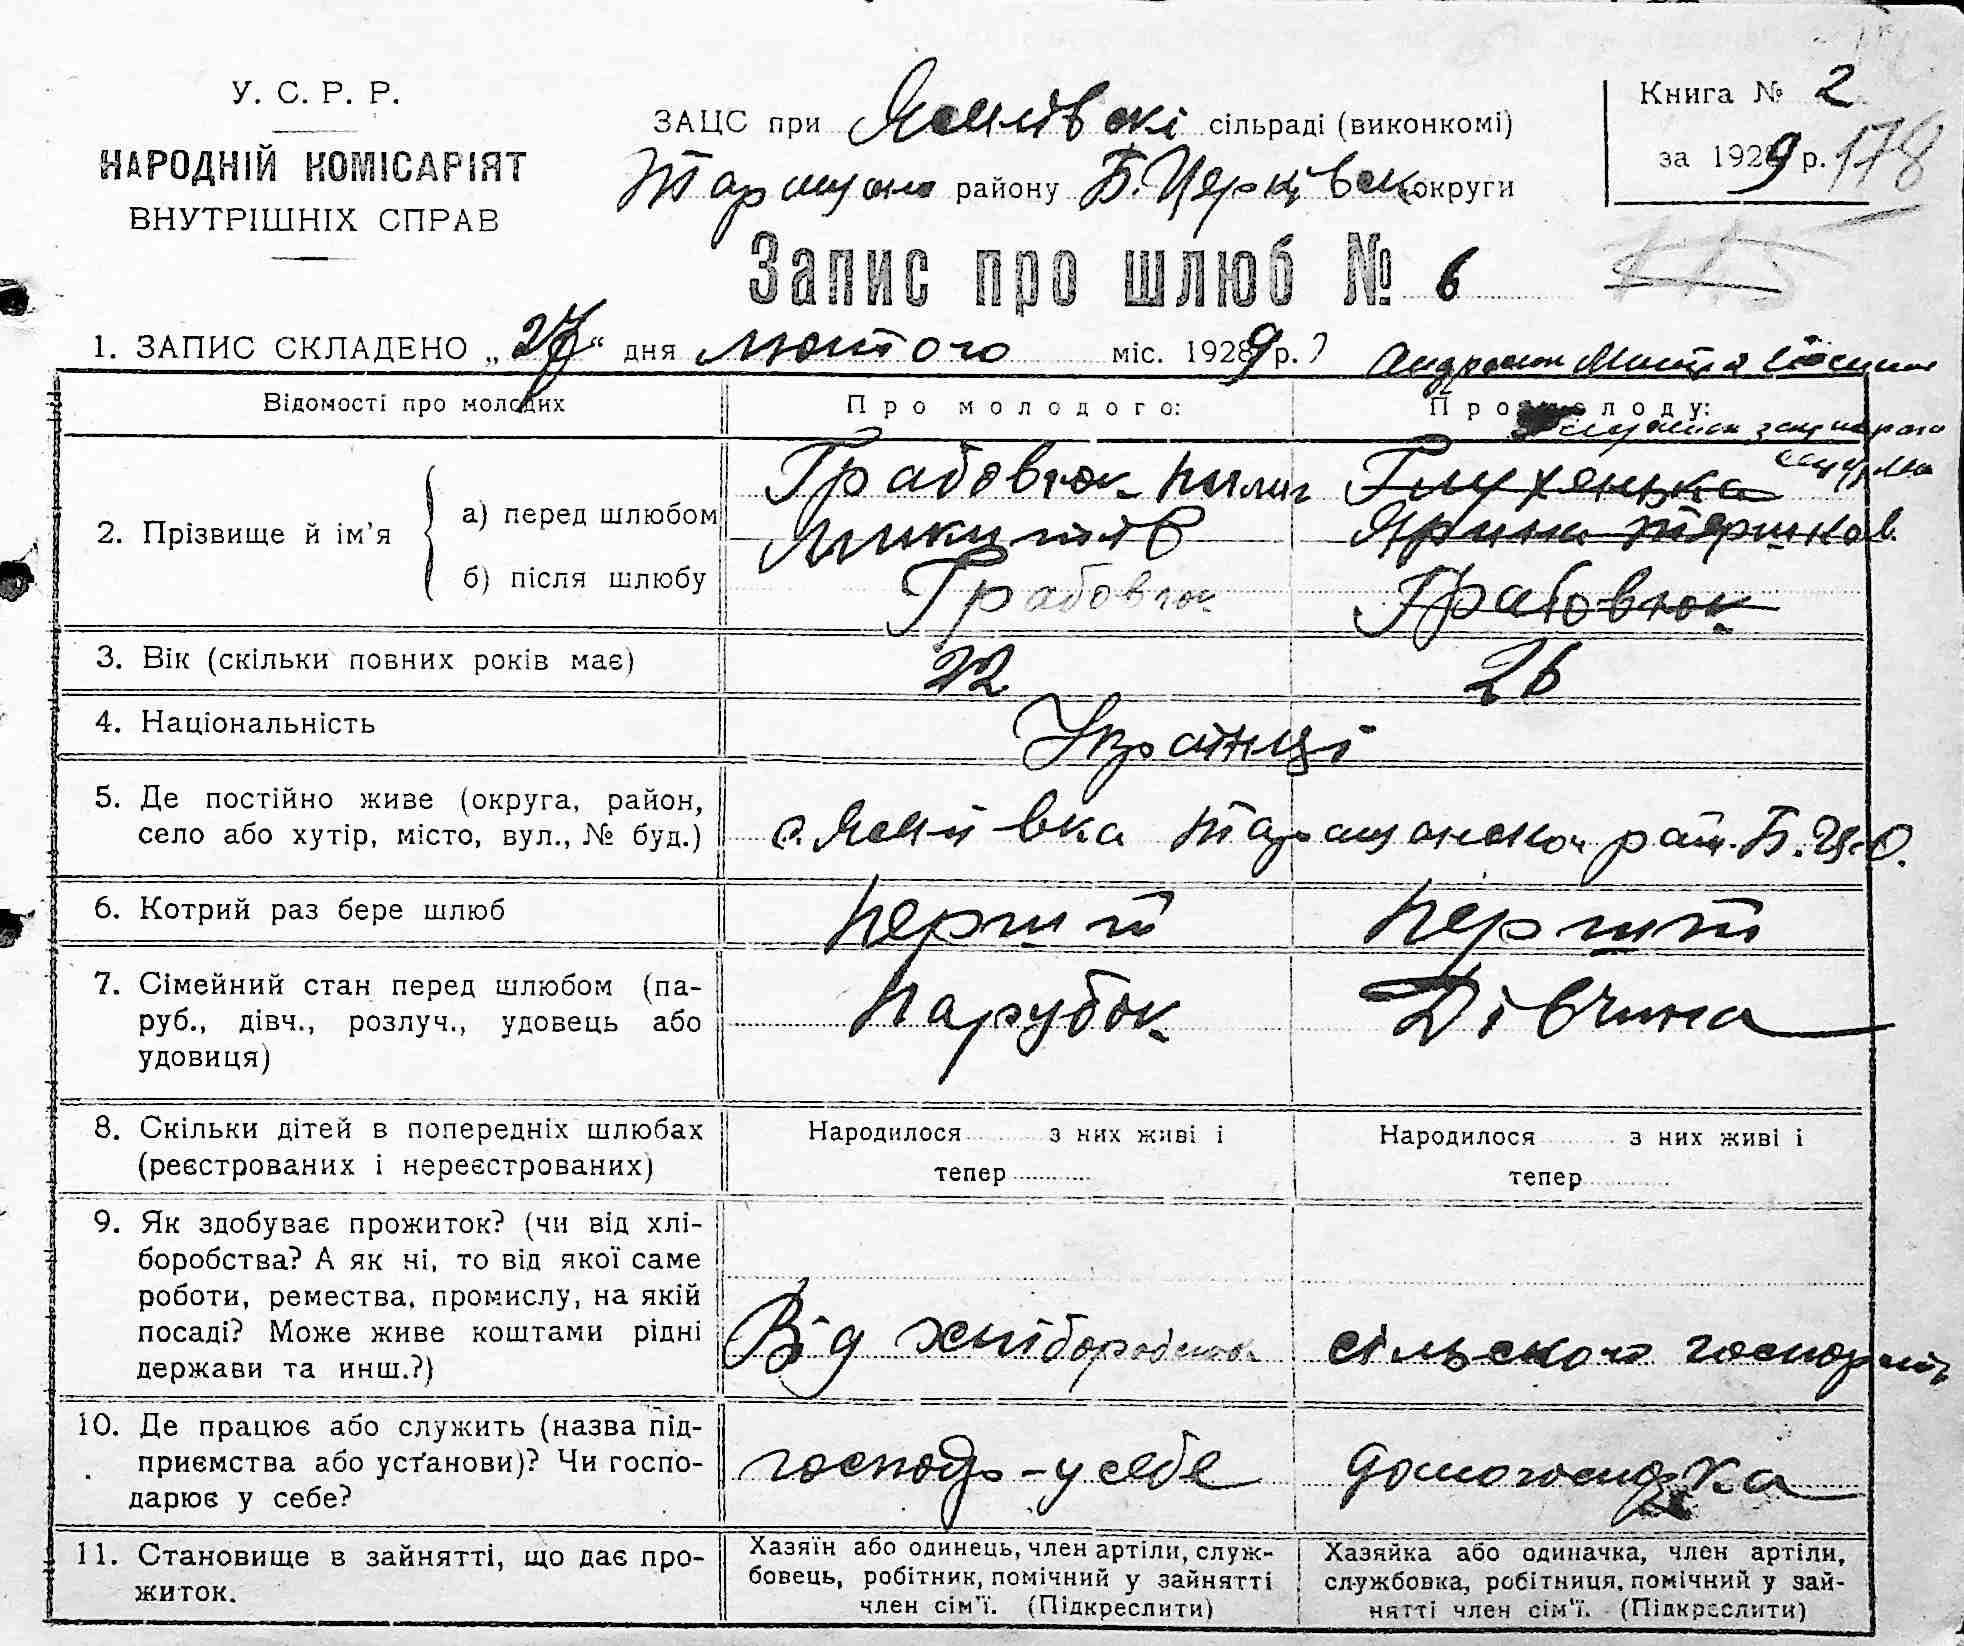 У. С. Р. Р.
НАРОДНІЙ КОМІСАРІЯТ
ВНУТРІШНІХ СПРАВ
ЗАЦС при сільраді (виконкомі)
району Б. Церківськ округи
Книга № 2
за 1929 р. 178
115
Запис про шлюб № 6
1. ЗАПИС СКЛАДЕНО „27“ дня лютого міс. 1929 р.
Відомості про молодих
Про молодого:
Про молоду:
2. Прізвище й ім’я
а) перед шлюбом
Грабовюк Пилип
Микитів
Глухенька
Ярина
б) після шлюбу
Грабовюк
Грабовюк
3. Вік (скільки повних років має)
22
26
4. Національність
Українці
5. Де постійно живе (округа, район,
село або хутір, місто, вул., № буд.)
с. Таращанськ рай. Б. Ц. О.
6. Котрий раз бере шлюб
Перший
Перший
7. Сімейний стан перед шлюбом (па-
руб., дівч., розлуч., удовець або
удовиця)
Парубок
Дівчина
8. Скільки дітей в попередніх шлюбах
(реєстрованих і нереєстрованих)
Народилося з них живі і
тепер
Народилося з них живі і
тепер
9. Як здобуває прожиток? (чи від хлі-
боробства? А як ні, то від якої саме
роботи, ремества, промислу, на якій
посаді? Може живе коштами рідні
держави та инш.?)
Від хліборобства
сільського господарств
10. Де працює або служить (назва під-
приємства або усґанови)? Чи госпо-
дарює у себе?
господ - у себе
домогосподка
11. Становище в зайнятті, що дає про-
житок.
Хазяїн або одинець, член артіли, служ-
бовець, робітник, помічний у зайнятті
член сім’ї. (Підкреслити)
Хазяйка або одиначка, член артіли,
службовка, робітниця, помічний у зай-
нятті член сім’ї. (Підкреслити)